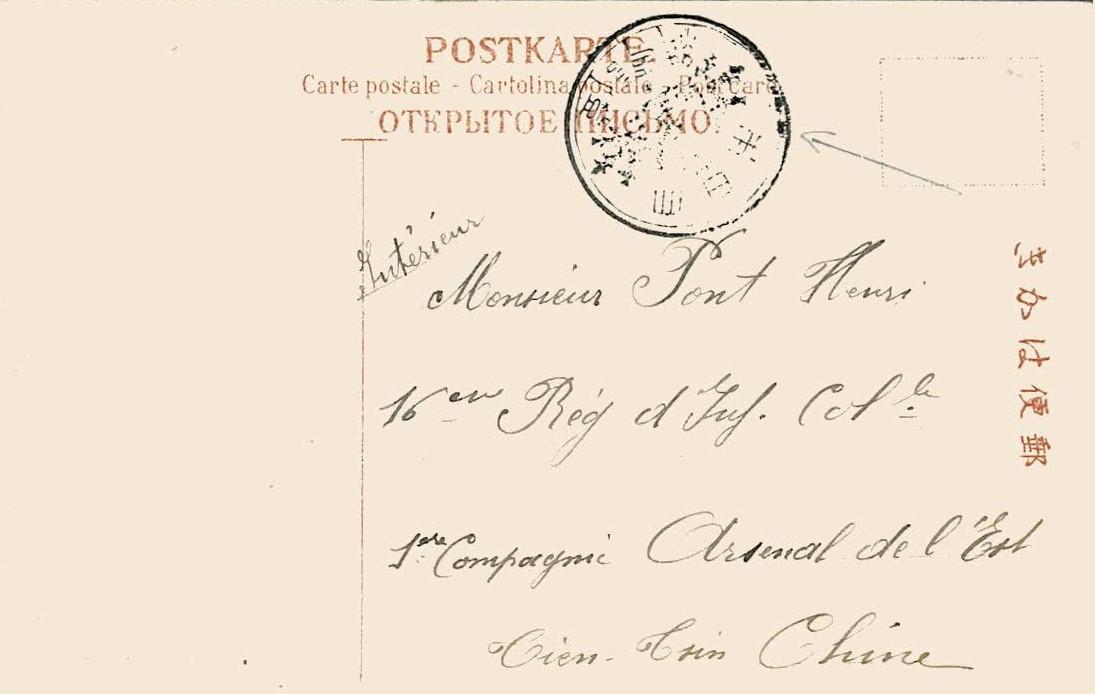 POSTKARTE.
Carte postale - Cartolina postale - Post card
ОТКРЫТОЕ ПИСЬМО.
Intérieur
Monsieur Pont Henri
16em Rég d'Inf. Colle
1ere Compagnie Arsenal de l'Est
Tien-Tsin Chine
郵便はかき